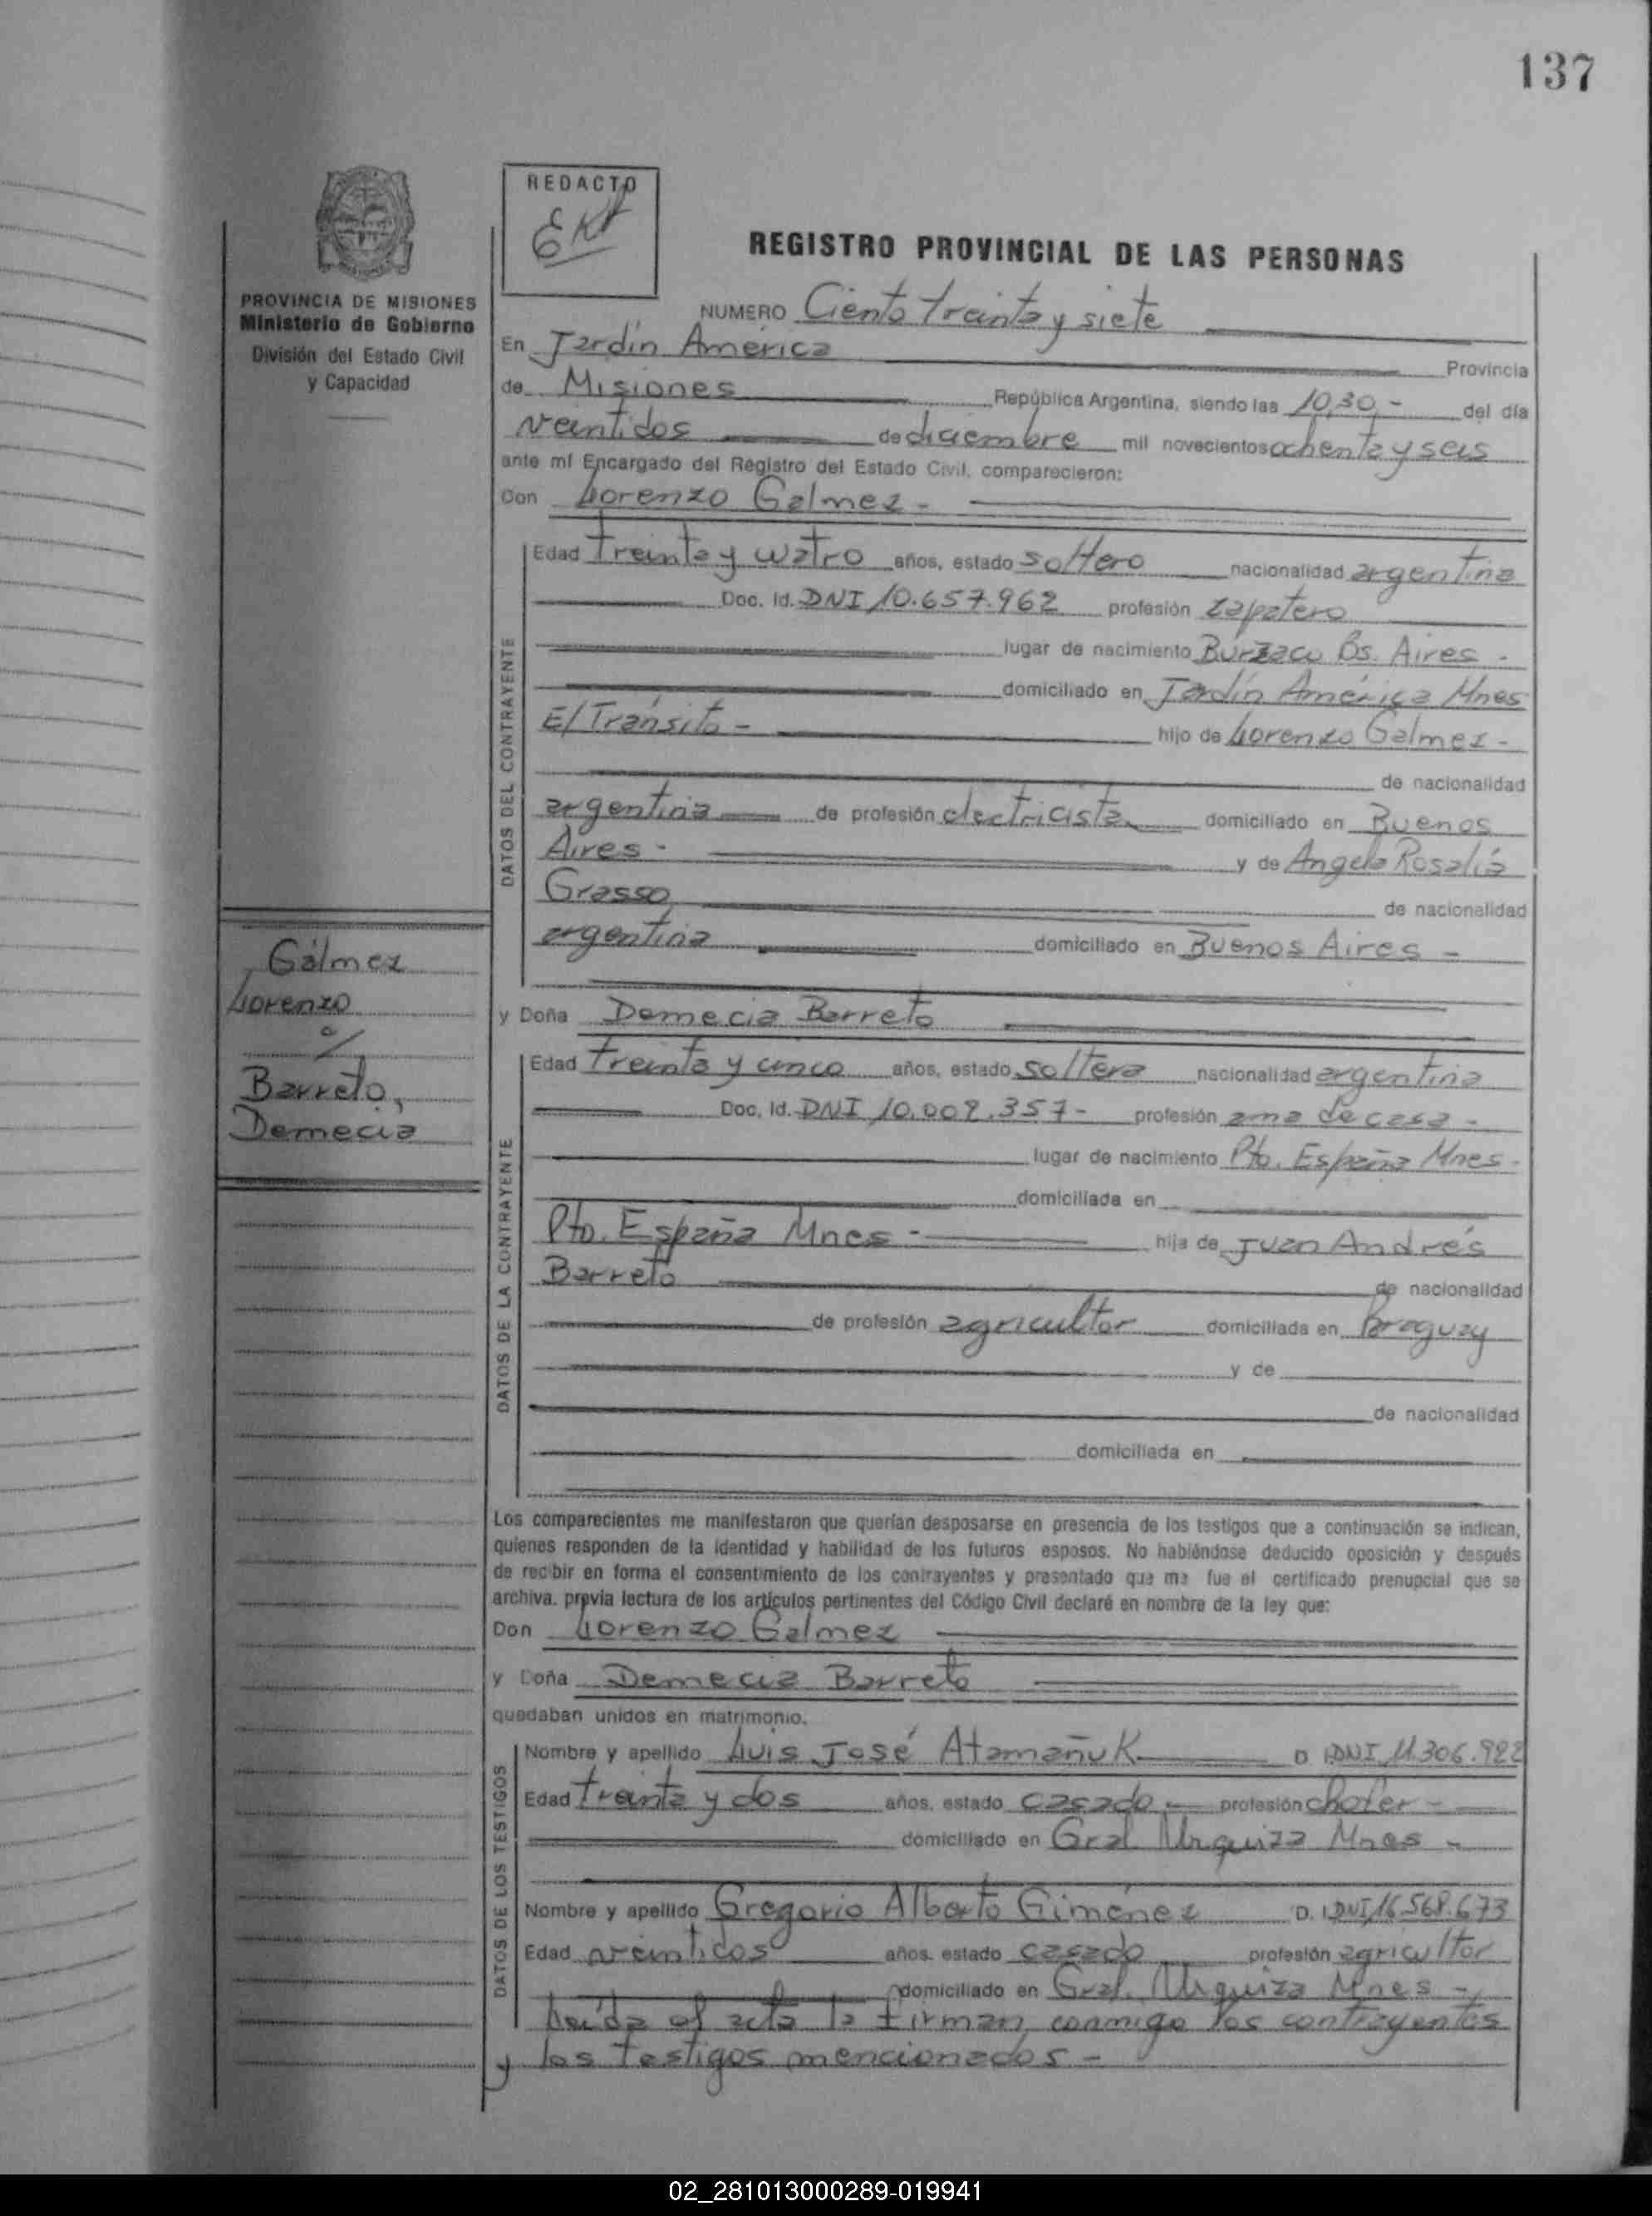 137
REDACTO
REGISTRO PROVINCIAL DE LAS PERSONAS
PROVINCIA DE MISIONES
Ministerio de Gobierno
División del Estado Civil
y Capacidad
NUMERO Ciento treinta y siete
En Jardín América Provincia
de Misiones República Argentina, siendo las 10,30,- del día
veintidos de diciembre mil novecientos ochenta y seis
ante mí Encargado del Registro del Estado Civil, comparecieron:
Don Lorenzo Galmez -
DATOS DEL CONTRAYENTE
Edad treinta y cuatro años, estado soltero nacionalidad argentina
Doc. Id. DNI 10.657.962 profesión zapatero
lugar de nacimiento Burzaco Bs. Aires -
domiciliado en Jardín América Mnes
El Tránsito - hijo de Lorenzo Galmez -
de nacionalidad
argentina de profesión electricista domiciliado en Buenos
Aires - y de Angela Rosalía
Grasso de nacionalidad
argentina domiciliado en Buenos Aires -
Gálmez
Lorenzo
c/
Barreto,
Demecia
y Doña Demecia Barreto
DATOS DE LA CONTRAYENTE
Edad treinta y cinco años, estado soltera nacionalidad argentina
Doc. Id. DNI 10.009.357- profesión ama de casa -
lugar de nacimiento Pto. España Mnes -
domiciliada en
Pto. España Mnes - hija de Juan Andrés
Barreto de nacionalidad
de profesión agricultor domiciliada en Paraguay
y de
de nacionalidad
domiciliada en
Los comparecientes me manifestaron que querían desposarse en presencia de los testigos que a continuación se indican,
quienes responden de la identidad y habilidad de los futuros esposos. No habiéndose deducido oposición y después
de recibir en forma el consentimiento de los contrayentes y presentado que me fue el certificado prenupcial que se
archiva. previa lectura de los artículos pertinentes del Código Civil declaré en nombre de la ley que:
Don Lorenzo Galmez
y Doña Demecia Barreto
quedaban unidos en matrimonio.
DATOS DE LOS TESTIGOS
Nombre y apellido Luis José Atamañuk D. I. DNI 11.306.922
Edad treinta y dos años, estado casado - profesión chofer -
domiciliado en Gral. Urquiza Mnes -
Nombre y apellido Gregorio Alberto Giménez D. I. DNI 16.568.673
Edad veintidos años. estado casado profesión agricultor
domiciliado en Gral. Urquiza Mnes -
Leída el acta la firman conmigo los contrayentes
y los testigos mencionados -
02_281013000289-019941